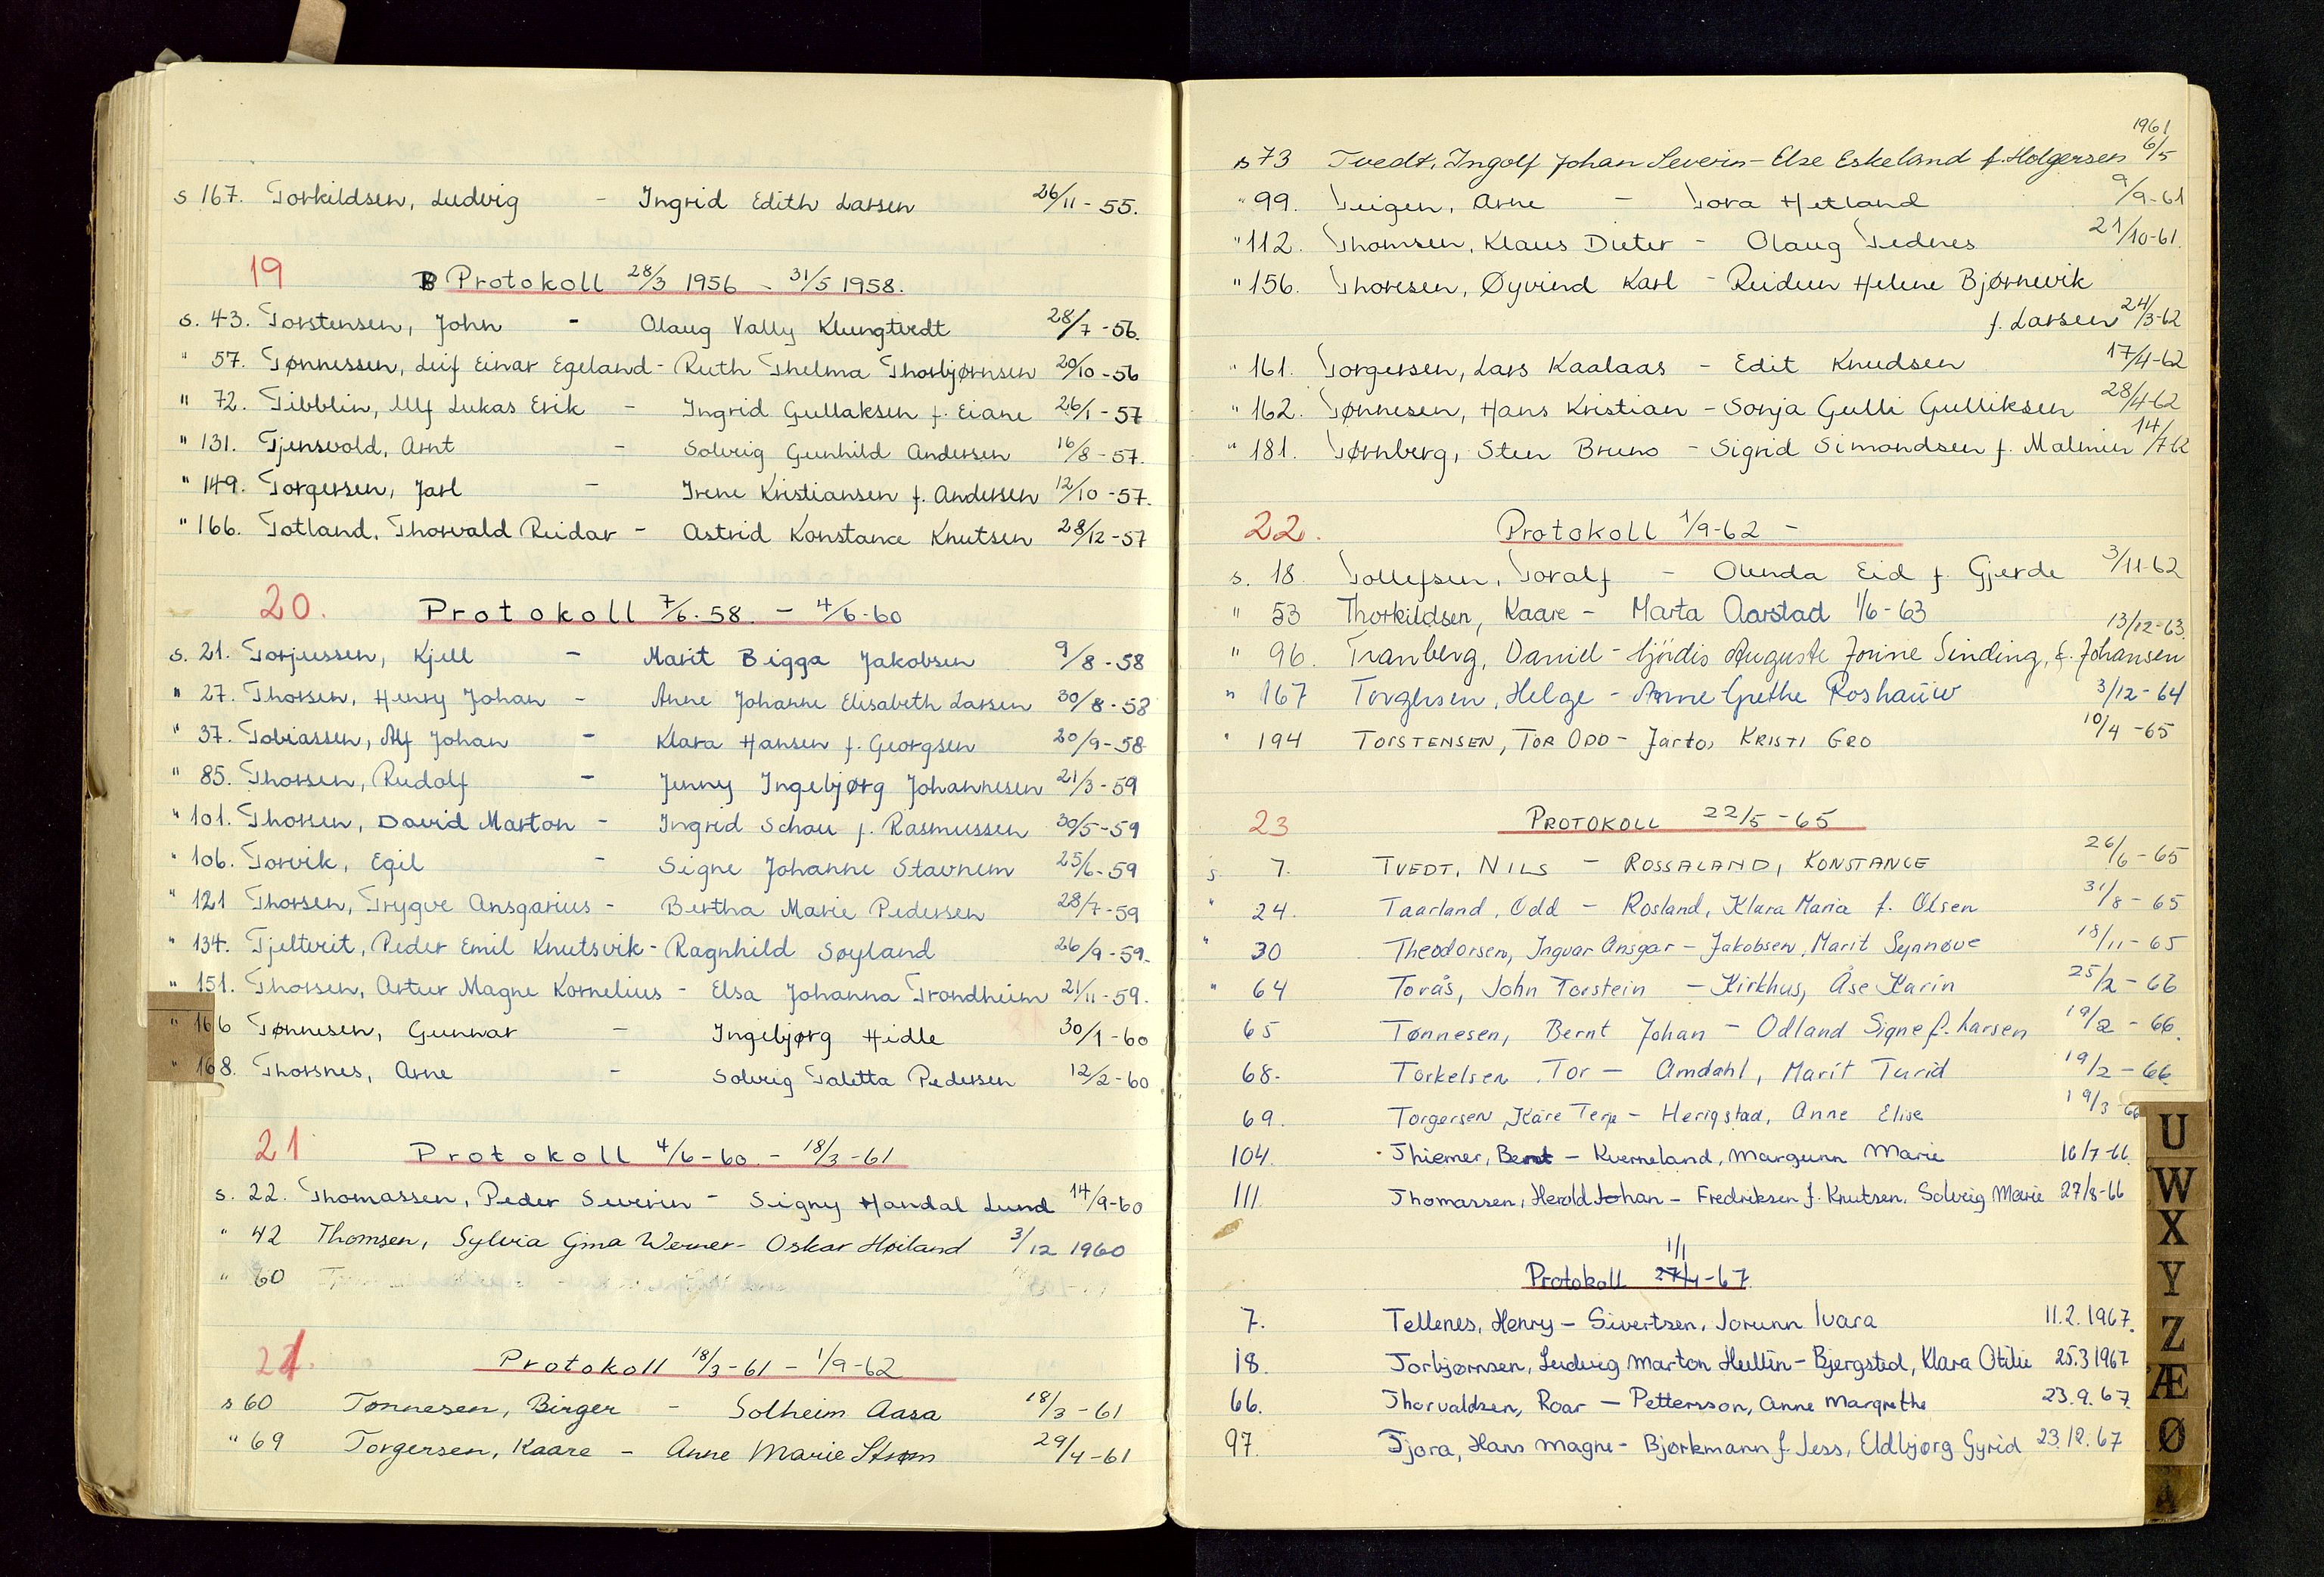 s 167. Torkildsen, Ludvig - Ingrid Edith Larsen 26/11-55.
19 Protokoll 28/3 1956 - 31/5 1958.
s. 43. Torstensen, John - Olaug Vally Klungtvedt 28/7-56.
" 57. Tønnessen, Leif Einar Egeland - Ruth Thelma Thorbjørnsen 20/10-56
" 72. Tibblin, Ulf Lukas Erik - Ingrid Gullaksen f. Eiane 26/1-57
" 131. Tjensvold, Arnt - Solveig Gunhild Andersen 16/8-57.
" 149. Torgersen, Jarl - Irene Kristiansen f. Andersen 12/10-57.
" 166. Totland, Thorvald Reidar - Astrid Konstance Knutsen 28/12-57
20. Protokoll 7/6-58. - 4/6-60
s. 21. Torjussen, Kjell - Marit Bigga Jakobsen 9/8-58
" 27. Thorsen, Henry Johan - Anne Johanne Elisabeth Larsen 30/8-58
" 37. Tobiassen, Alf Johan - Klara Hansen f. Georgsen 20/9-58
" 85. Thorsen, Rudolf - Jenny Ingebjørg Johannesen 21/3-59
" 101. Thorsen, David Marton - Ingrid Schau f. Rasmussen 30/5-59
" 106. Torvik, Egil - Signe Johanne Stavnem 25/6-59
" 121 Thorsen, Trygve Ansgarius - Bertha Marie Pedersen 28/7-59
" 134. Tjelterit, Peder Emil Knutsvik - Ragnhild Søyland 26/9-59.
" 151. Thorsen, Artur Magne Kornelius - Elsa Johanna Trondheim 21/11-59.
" 166 Tønnesen, Gunnar - Ingebjørg Hidle 30/1-60
" 168. Thorsnes, Arne - Solveig Taletta Pedersen 12/2-60
21 Protokoll 4/6-60. - 18/3-61
s. 22. Thomassen, Peder Severin - Signy Handal Lund 14/9-60
" 42 Thomsen, Sylvia Gina Werner - Oskar Høiland 3/12 1960
" 60
21. Protokoll 18/3-61 - 1/9-62
s 60 Tønnesen, Birger - Solheim Aasa 18/3-61
" 69 Torgersen, Kaare - Anne Marie Strøm 29/4-61
1961
s 73 Tvedt, Ingolf Johan Severin - Else Eskeland f. Holgersen 6/5
" 99. Teigen, Arne - Tora Hetland 9/9-61
" 112. Thomsen, Klaus Dieter - Olaug Tednes 21/10-61.
" 156. Thoresen, Øyvind Karl - Reidun Helene Bjørnevik
f. Larsen 24/3-62
" 161. Torgersen, Lars Kaalaas - Edit Knudsen 17/4-62
" 162. Tønnesen, Hans Kristian - Sonja Gulli Gulliksen 28/4-62
" 181. Tørnberg, Sten Bruno - Sigrid Simondsen f. Malmin 14/7 62
22. Protokoll 1/9-62 -
s. 18. Tollefsen, Toralf - Olenda Eid f. Gjerde 3/11-62
" 53 Thorkildsen, Kaare - Marta Aarstad 1/6-63
" 96. Tranberg, Daniel - Hjördis Auguste Jorine Sinding, f. Johansen 13/12-63.
" 167 Torgersen, Helge - Anne Grethe Roshauw 3/12-64
" 194 TORSTENSEN, TOR ODD - Jarto, KRISTI GRO 10/4-65
23 PROTOKOLL 22/5-65
s 7. TVEDT, NILS - ROSSALAND, KONSTANCE 26/6-65
" 24. Taarland, Odd - Rosland, Klara Maria f. Olsen 31/8-65
" 30 Theodorsen, Ingvar Ansgar - Jakobsen, Marit Synnøve 18/11-65
" 64 Torås, John Torstein - Kirkhus, Åse Karin 25/2-66
65 Tønnesen, Bernt Johan - Odland Signe f. Larsen 19/2-66.
68. Torkelsen, Tor - Amdahl, Marit Turid 19/2-66
69. Torgersen, Kåre Terje - Herigstad, Anne Elise 19/3-66
104. Thiemer, Bernt - Kverneland, Margunn Marie 16/7-66.
111. Thomassen, Herold Johan - Fredriksen f. Knutsen, Solveig Marie 27/8-66
1/1
Protokoll 27/4-67.
7. Tellenes, Henry - Sivertsen, Jorunn Ivara 11.2.1967.
18. Torbjørnsen, Ludvig Marton Hullin - Bjergsted, Klara Otilie 25.3 1967
66. Thorvaldsen, Roar - Pettersson, Anne Margrethe 23.9.67.
97. Tjora, Hans Magne - Bjørkmann f. Jess, Eldbjørg Gyrid 23.12.67
U
W
X
Y
Z
Æ
Ø
Å